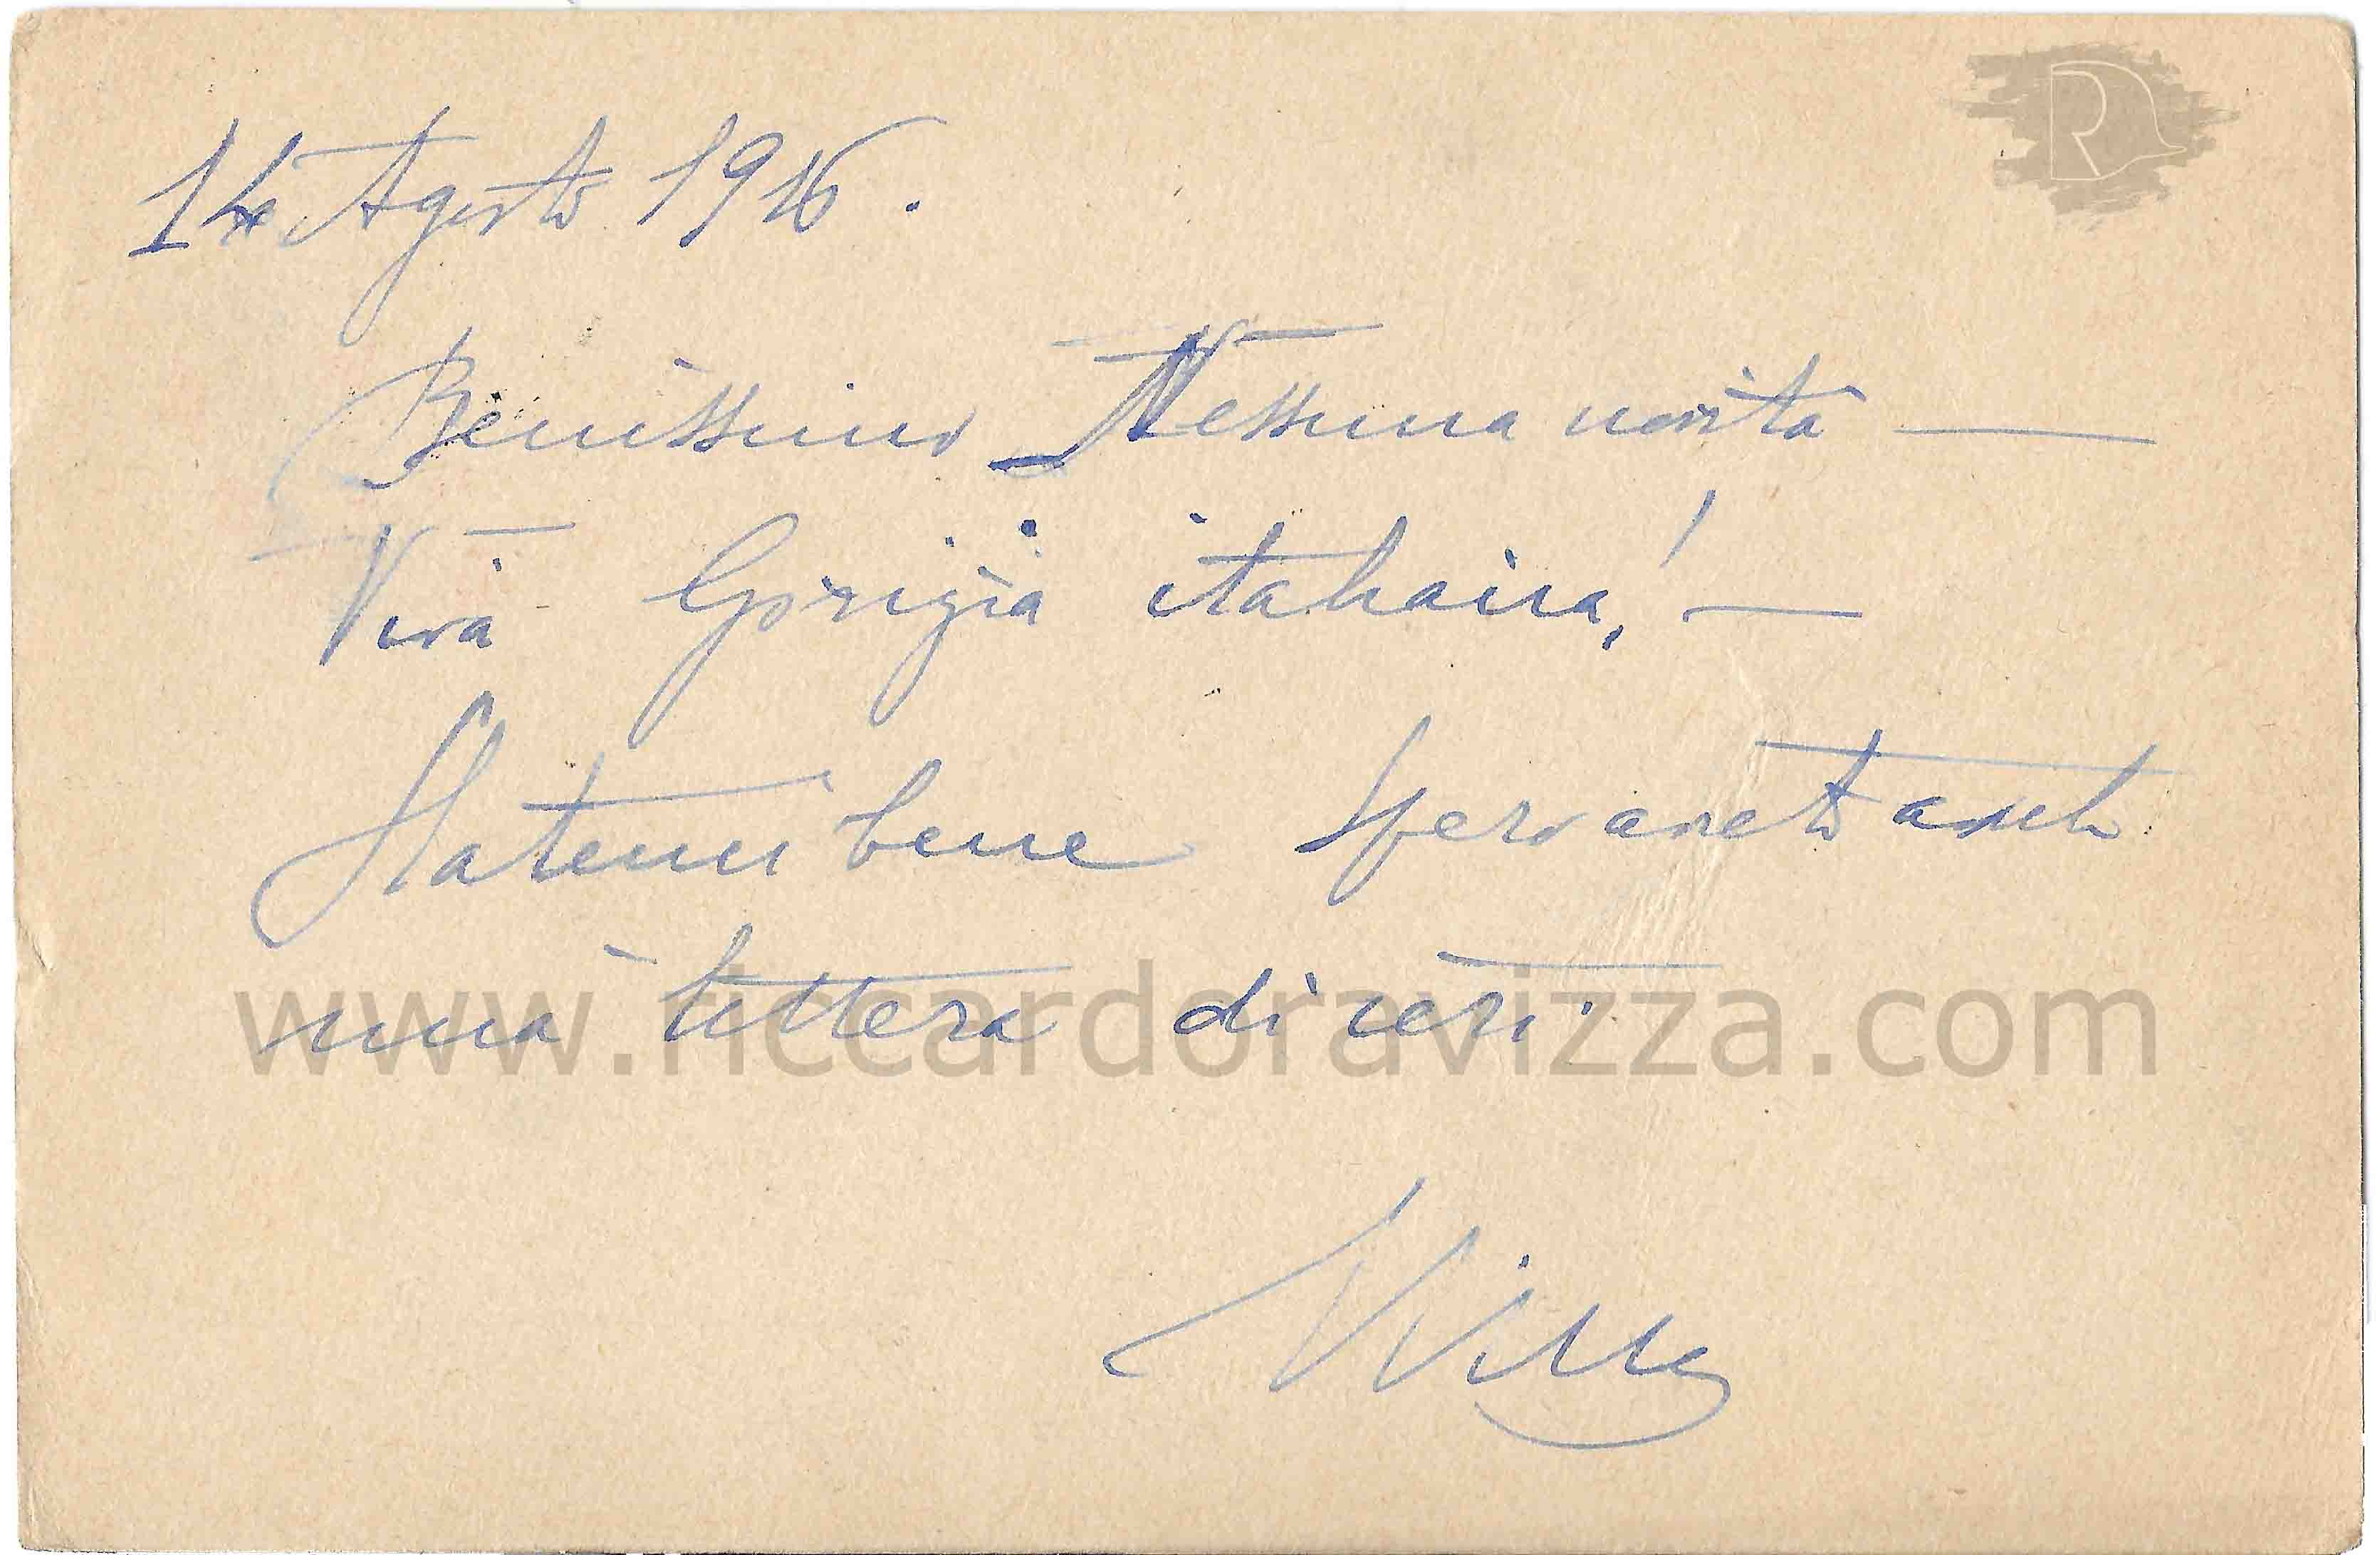 14 Agosto 1916.
Benissimo Nessuna novità —
Viva Gorizia italiana! —
Statemi bene Spero avete avuta
una lettera di ieri.
www.riccardoravizza.com
Willy